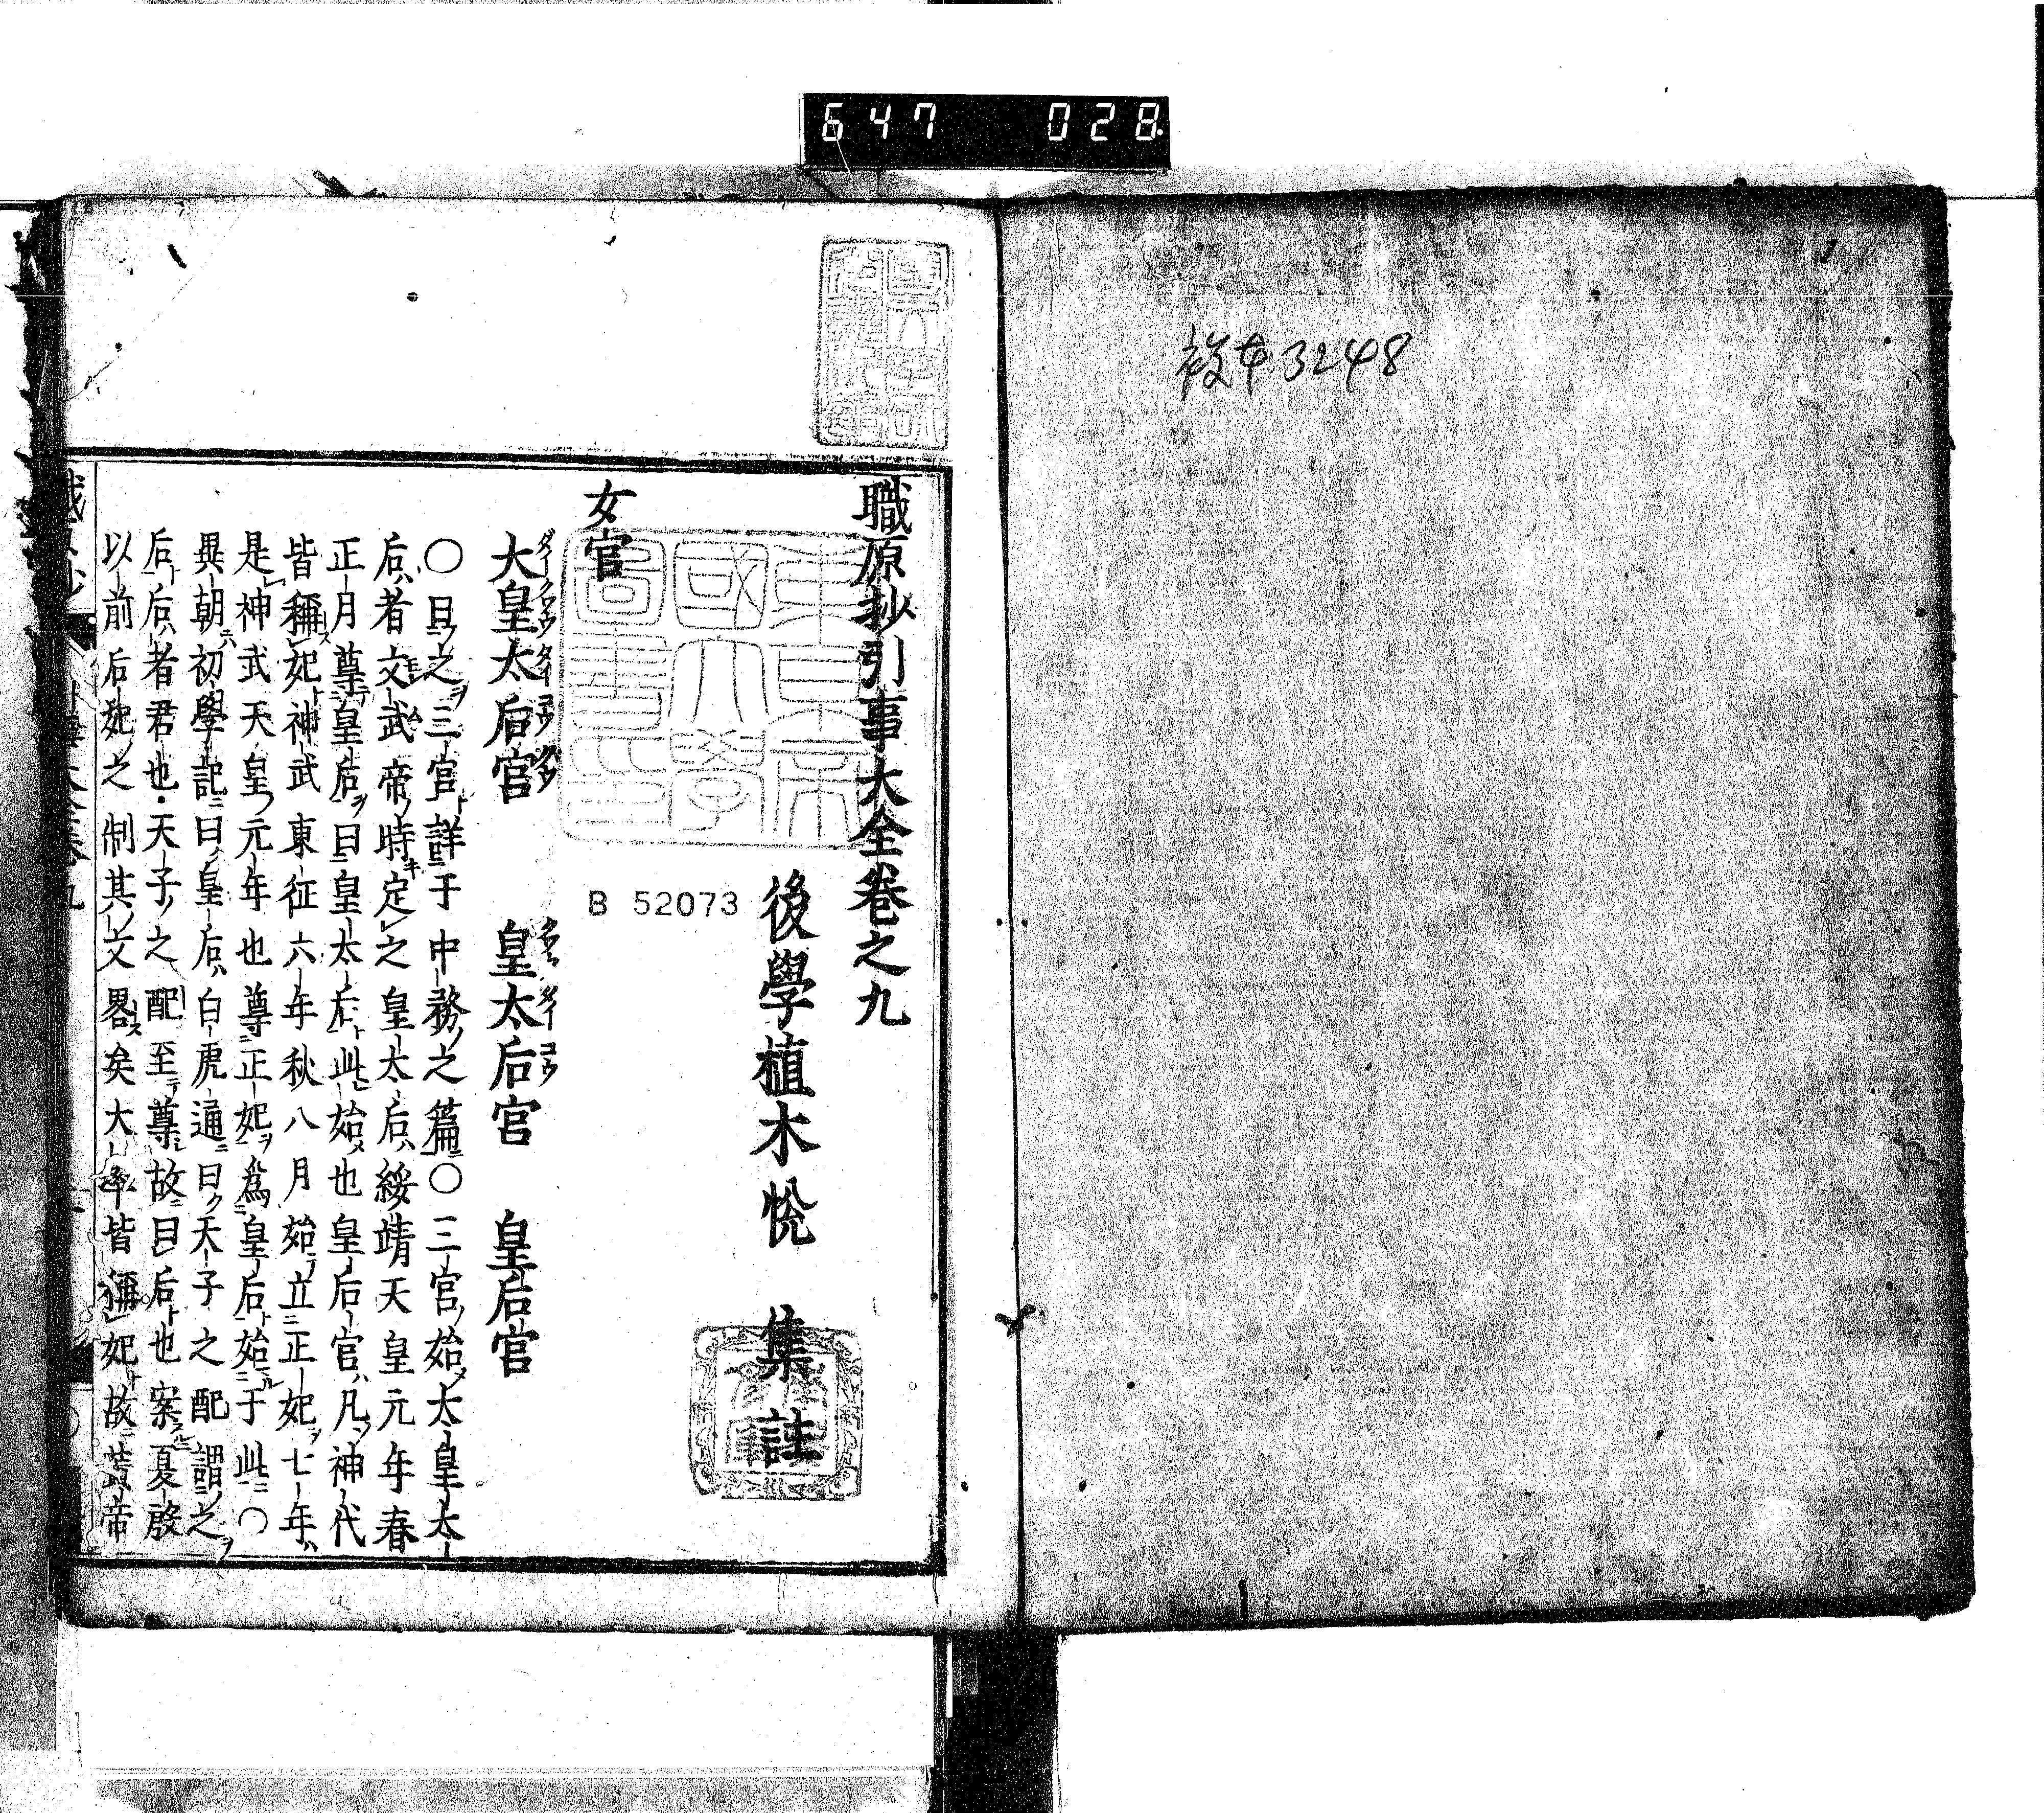 647 028
3248
職原抄引事大全卷之九
後學植木悦 集註
女官
大皇太后宮 皇太后宮 皇后宮
〇曰之三宮詳于中務之篇〇三宮始太皇太
后者文武帝時定之皇太后綏靖天皇元年春
正月尊皇后曰皇太后此始也皇后宮凡神代
皆稱妃神武東征六年秋八月始立正妃七年
是神武天皇元年也尊正妃爲皇后始于此〇
異朝初學記曰皇后白虎通曰天子之配謂之
后后者君也天子之配至尊故曰后也案夏殷
以前后妃之制其文畧矣大率皆稱妃故黄帝
B 52073
東京帝國大學圖書印